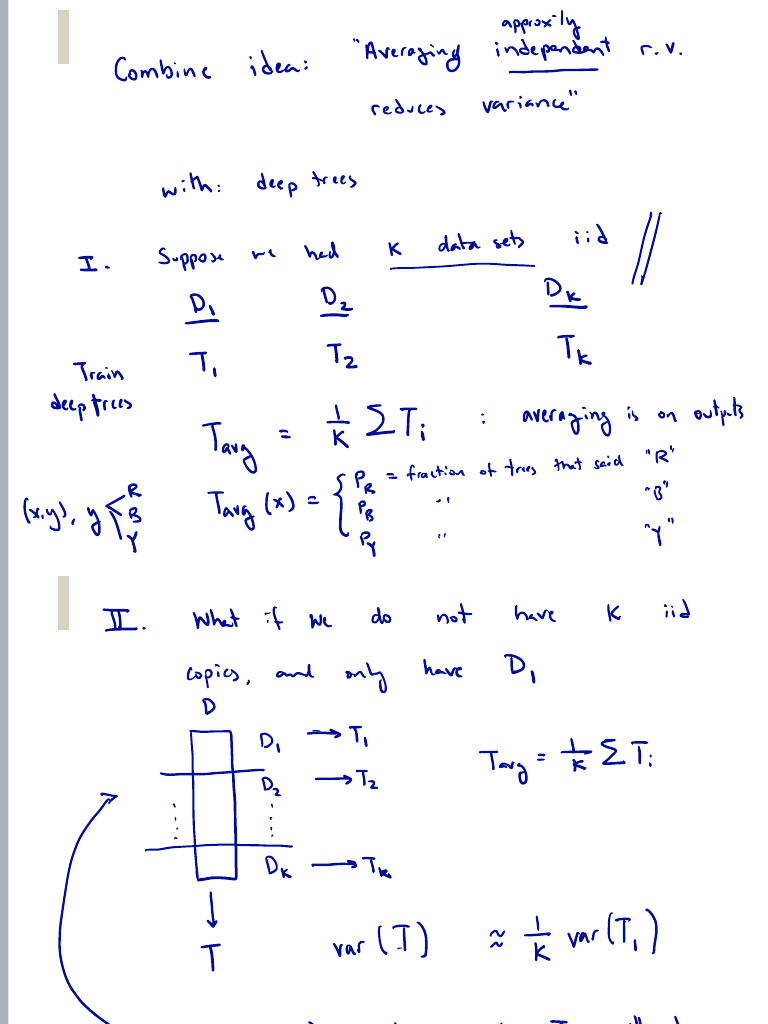 approx-ly
Combine idea: "Averaging independent r.v.
reduces variance"
with: deep trees
I. Suppose we had K data sets iid
D₁ D₂ Dₖ
T₁ T₂ Tₖ
Train
deep trees
T_avg = 1/K Σ Tᵢ : averaging is on outputs
(x,y), y R B Y
T_avg(x) = { P_R = fraction of trees that said "R"
P_B " "B"
P_Y " "Y"
II. What if we do not have K iid
copies, and only have D₁
D
D₁ → T₁
T_avg = 1/K Σ Tᵢ
D₂ → T₂
Dₖ → Tₖ
T
var(T) ≈ 1/K var(T₁)